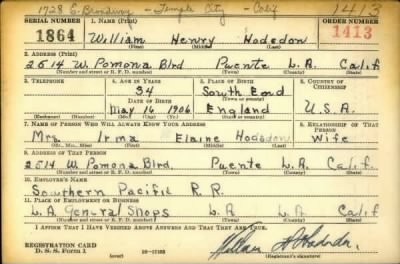 1728 E. - Temple City - Calif 1413
SERIAL NUMBER 1. NAME (Print) ORDER NUMBER
1864 William Henry Hodsdon 1413
(First) (Middle) (Last)
2. ADDRESS (Print)
2514 W. Pomona Blvd Puente L.A. Calif
(Number and street or R. F. D. number) (Town) (County) (State)
3. TELEPHONE 4. AGE IN YEARS 5. PLACE OF BIRTH 6. COUNTRY OF CITIZENSHIP
34 South End
DATE OF BIRTH (Town or county)
May 16 1906 England U.S.A.
(Exchange) (Number) (Mo.) (Day) (Yr.) (State or country)
7. NAME OF PERSON WHO WILL ALWAYS KNOW YOUR ADDRESS 8. RELATIONSHIP OF THAT PERSON
Mrs Irma Elaine Hodsdon Wife
(Mr., Mrs., Miss) (First) (Middle) (Last)
9. ADDRESS OF THAT PERSON
2514 W Pomona Blvd. Puente L.A. Calif.
(Number and street or R. F. D. number) (Town) (County) (State)
10. EMPLOYER'S NAME
Southern Pacific R.R.
11. PLACE OF EMPLOYMENT OR BUSINESS
L.A. General Shops L.A. L.A. Calif
(Number and street or R. F. D. number) (Town) (County) (State)
I AFFIRM THAT I HAVE VERIFIED ABOVE ANSWERS AND THAT THEY ARE TRUE.
REGISTRATION CARD
D. S. S. Form 1 (over) (Registrant's signature)